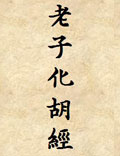 老子化胡經